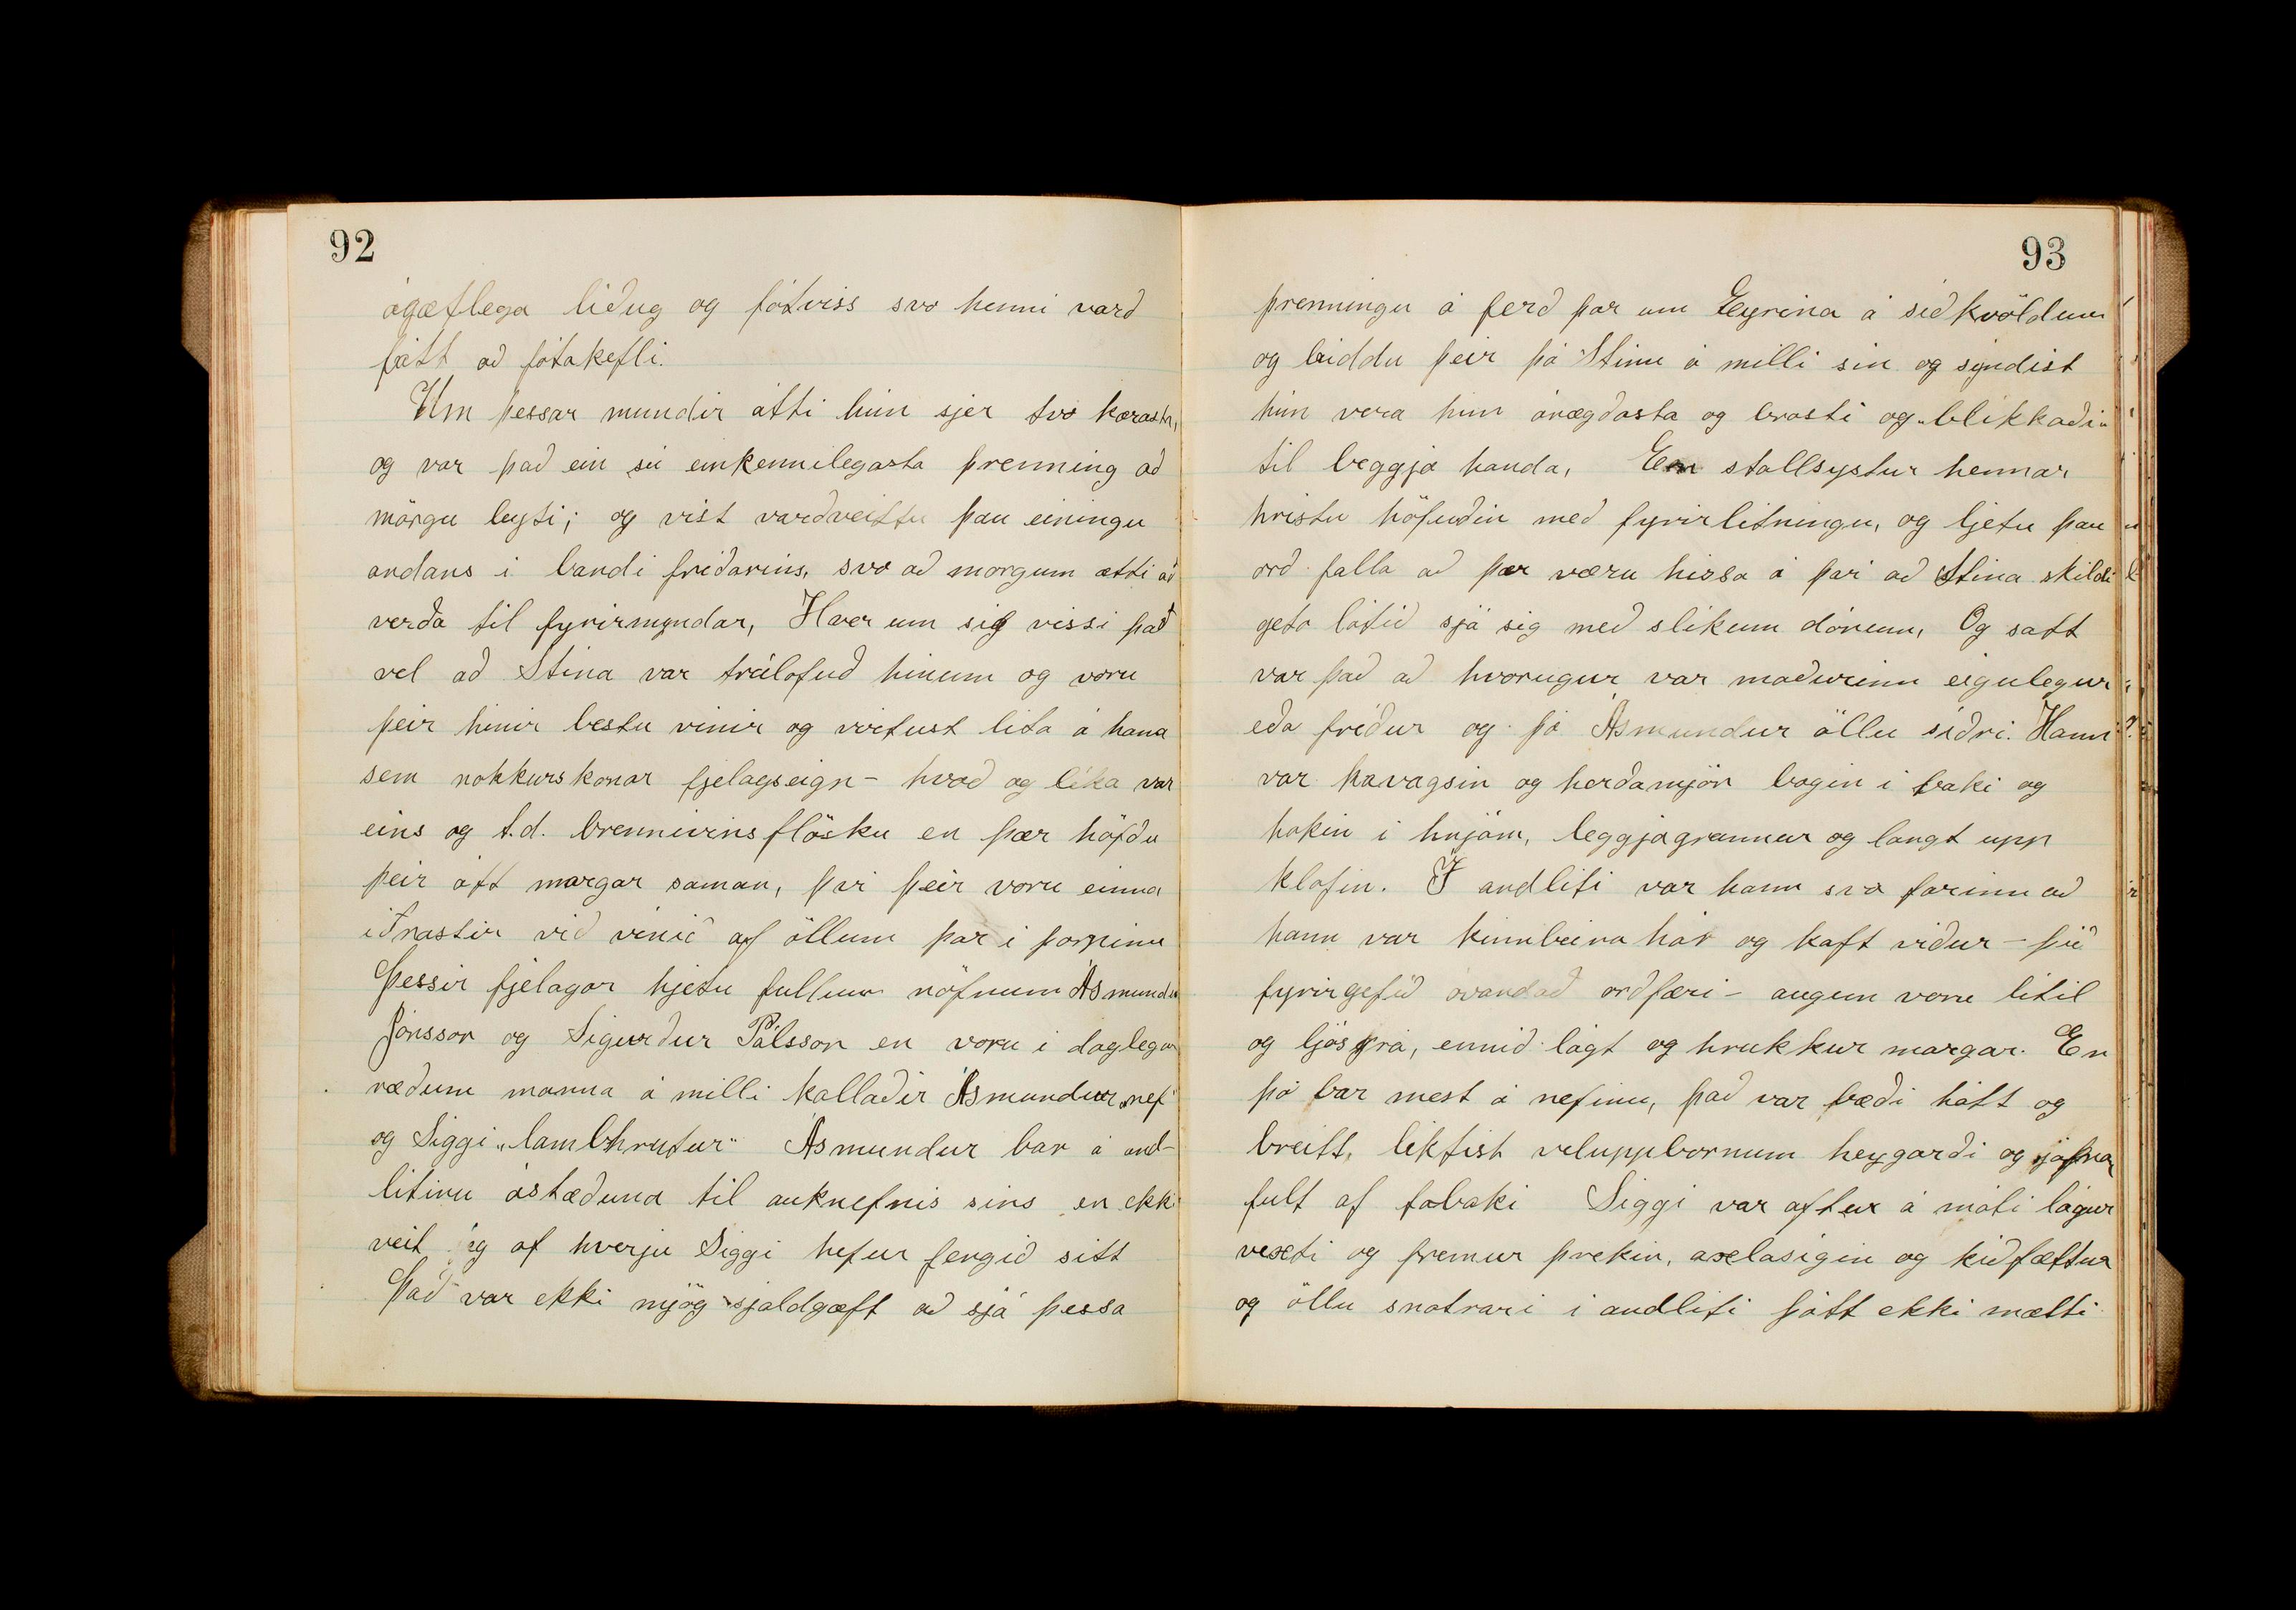 92
ágætlega liðug og fótviss svo henni varð
fátt að fótakefli.
Um þessar mundir átti hún sjer tvo kærasta,
og var það ein sú einkennilegasta þrenning að
mörgu leyti; og vist varðveittu þau einingu
andans i bandi friðarins, svo að morgum ætti að
verða til fyrirmyndar, Hver um sig vissi það
vel að Stina var trúlofuð hinum og voru
þeir hinir bestu vinir og virtust lita á hana
sem nokkurskonar fjelagseign - hvað og líka var
eins og t.d. brennivinsflösku en þær höfðu
þeir átt margar saman, þvi þeir voru einna
iðnastir við vinið af öllum þar i þorpinu
Þessir fjelagar hjetu fullum nöfnum Ásmundur
Jónsson og Sigurður Pálsson en voru i daglegum
ræðum manna á milli kallaðir Ásmundur „nef"
og Siggi „lambhrutur" Ásmundur bar á and-
litinu ástæðuna til auknefnis sins en ekki
veit jeg af hverju Siggi hefur fengið sitt
Það var ekki mjög sjaldgæft að sjá þessa
93
þrenningu á ferð þar um Eyrina á siðkvöldum
og leiddu þeir þá Stinu á milli sin og syndist
hún vera hin ánægðasta og brosti og „blikkaði"
til beggja handa, En stallsystur hennar
hristu höfuðin með fyrirlitningu, og ljetu þau
orð falla að þær væru hissa á þvi að Stina skildi
geta látið sjá sig með slikum dónum, Og satt
var það að hvorugur var maðurinn eigulegur
eða friður og þó Ásmundur öllu siðri. Hann
var hávagsin og herðamjór bogin i baki og
hokin i hnjám, leggjagrannur og langt upp
klofin. I andliti var hann svo farinn að
hann var kinnbeina hár og kaft viður - þið
fyrirgefið óvandað orðfæri - augun voru litil
og ljósgrá, ennið lágt og hrukkur margar. En
þó bar mest á nefinu, það var bæði hátt og
breitt, liktist veluppbornum heygarði og jafnan
fult af tobaki Siggi var aftur á móti lágur
vexti og fremur þrekin, axlasigin og kiðfættur
og öllu snotrari i andliti þótt ekki mætti